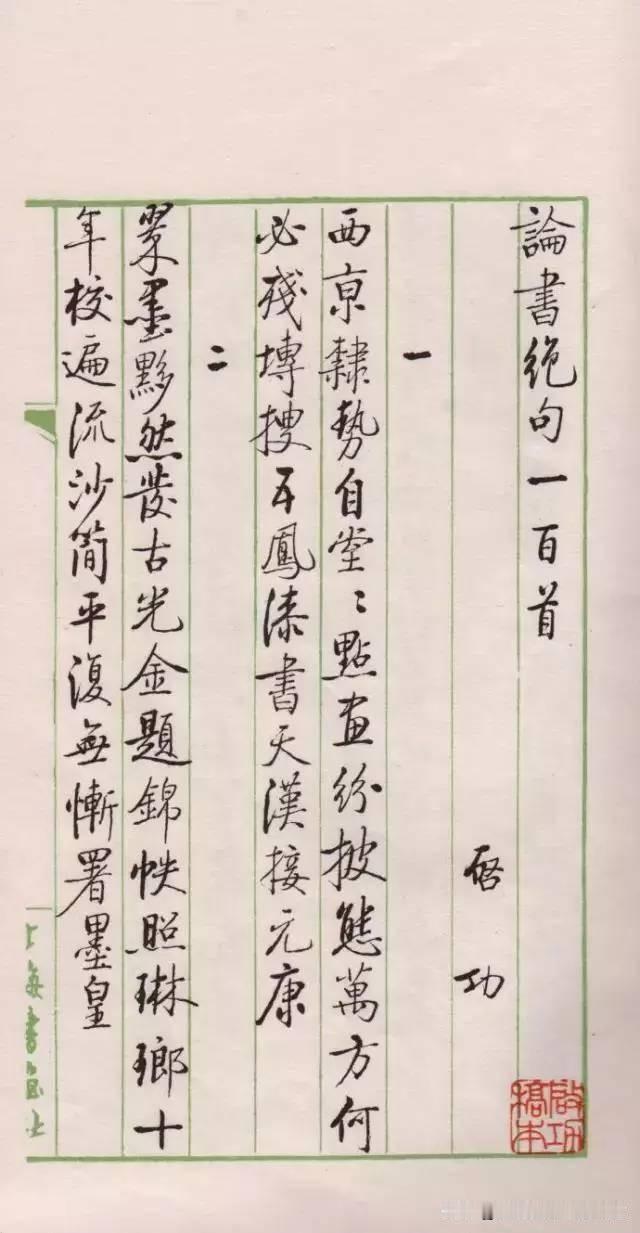 論書絕句一百首
啓功
一
西京隸勢自堂〻點畫紛披態萬方何
必殘塼搜五鳳漆書天漢接元康
二
翠墨黟然發古光金題錦帙照琳瑯十
年校遍流沙簡平復無慚署墨皇
啟功
稿本
上海書畫社